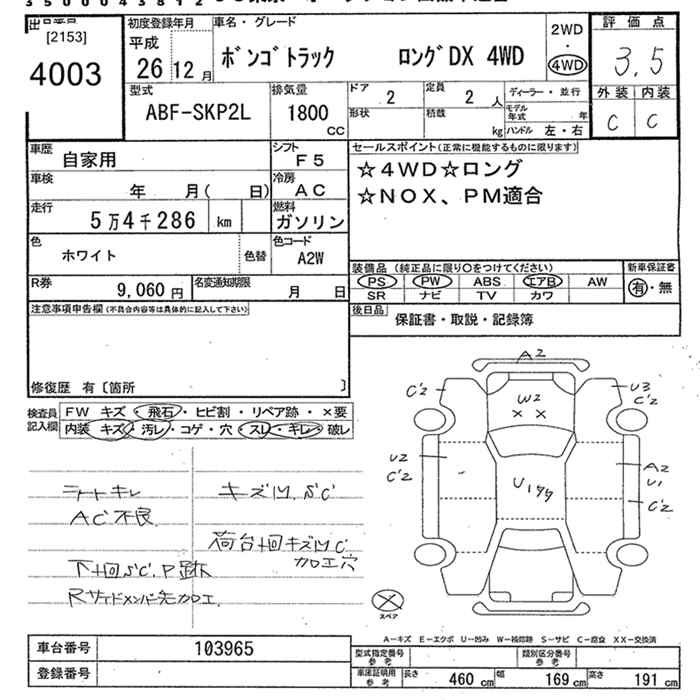 3500043812
[2153]
4003
初度登録年月
平成
26 12 月
車名・グレード
ボンゴトラック ロングDX 4WD
2WD
・
4WD
評価点
3.5
外装 内装
C C
型式
ABF-SKP2L
排気量
1800
CC
ドア
2
定員
2 人
形状
積載
kg
ディーラー・並行
モデル年式 年
ハンドル 左・右
車歴
自家用
シフト
F5
車検
年 月( 日)
冷房
AC
走行
5万4千286 km
燃料
ガソリン
色
ホワイト
色替
色コード
A2W
R券
9,060 円
名変通知期限
月 日
セールスポイント(正常に機能するものに限ります)
☆4WD☆ロング
☆NOX、PM適合
装備品(純正品に限り○をつけてください)
PS PW ABS エアB AW
SR ナビ TV カワ
新車保証書
有・無
後日品
保証書・取説・記録簿
注意事項申告欄(不具合内容等は具体的に記入して下さい)
修復歴 有〔箇所 〕
検査員記入欄
FW キズ・飛石・ヒビ割・リペア跡・×要
内装 キズ・汚レ・コゲ・穴・スレ・キレ・破レ
シートキレ
AC不良
下廻S'C.P跡
Rサイドメンバー先加工
キズ凹.S'C
荷台廻キズ凹C
加工穴
A2
C'2
U3
C'2
W2
× ×
U2
C'2
Uｲﾀﾀ
A2
U1
C'2
スペア
A−キズ E−エクボ U−凹み W−補修跡 S−サビ C−腐食 XX−交換済
車台番号
103965
登録番号
型式指定番号
参考
類別区分番号
参考
車庫証明用
参考
長さ 460 cm 幅 169 cm 高さ 191 cm